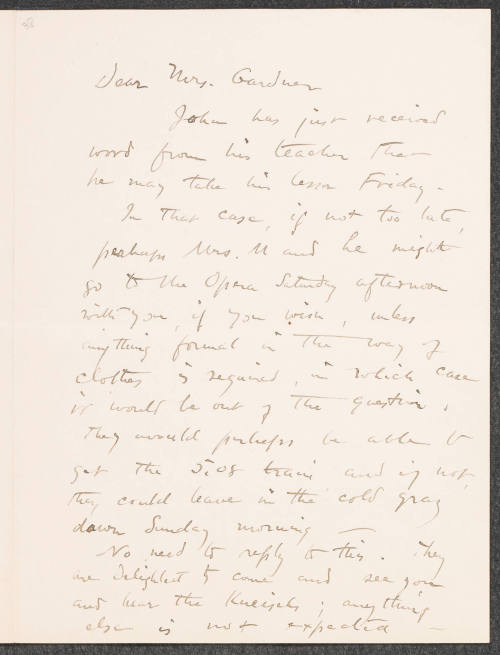 Dear Mrs. Gardner
John has just received
word from his teacher that
he may take his lesson Friday.
In that case, if not too late,
perhaps Mrs. M and he might
go to the Opera Saturday afternoon
with you, if you wish, unless
anything formal in the way of
clothes is required, in which case
it would be out of the question.
They would perhaps be able to
get the 5:08 train and if not,
they could leave in the cold gray
dawn Sunday morning —
No need to reply to this. They
are delighted to come and see you
and hear the Kneisels; anything
else is not expected —